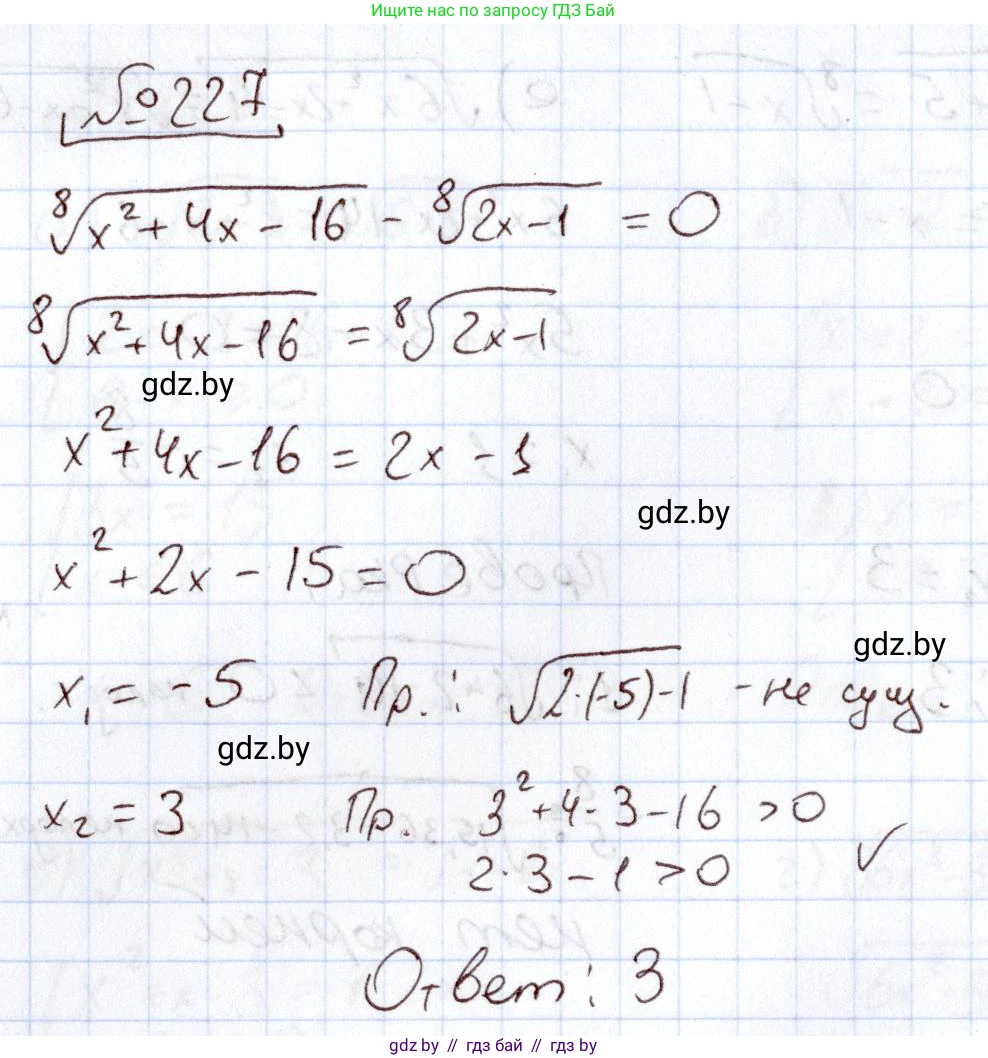 Ищите нас по запросу ГДЗ Бай
№227
⁸√(x²+4x-16) - ⁸√(2x-1) = 0
⁸√(x²+4x-16) = ⁸√(2x-1)
gdz.by
x²+4x-16 = 2x-1
gdz.by
x²+2x-15=0
gdz.by
x₁ = -5 Пр.: √(2·(-5)-1) - не сущ.
gdz.by
x₂ = 3 Пр. 3²+4·3-16 >0
2·3-1 >0 ✓
Ответ: 3
gdz.by // гдз бай // гдз by